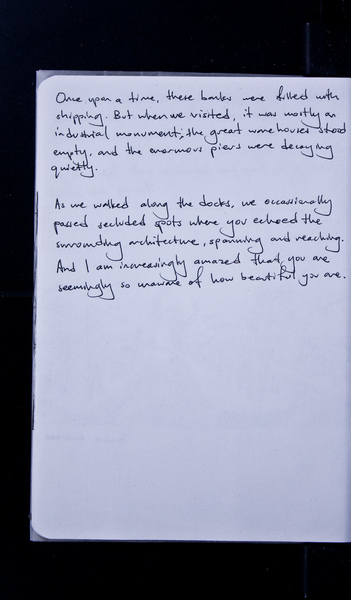 Once upon a time, these banks were filled with
shipping. But when we visited, it was mostly an
industrial monument; the great warehouses stood
empty, and the enormous piers were decaying
quietly.
As we walked along the docks, we occassionally
passed secluded spots where you echoed the
surrounding architecture, spanning and reaching.
And I am increasingly amazed that you are
seemingly so unaware of how beautiful you are.